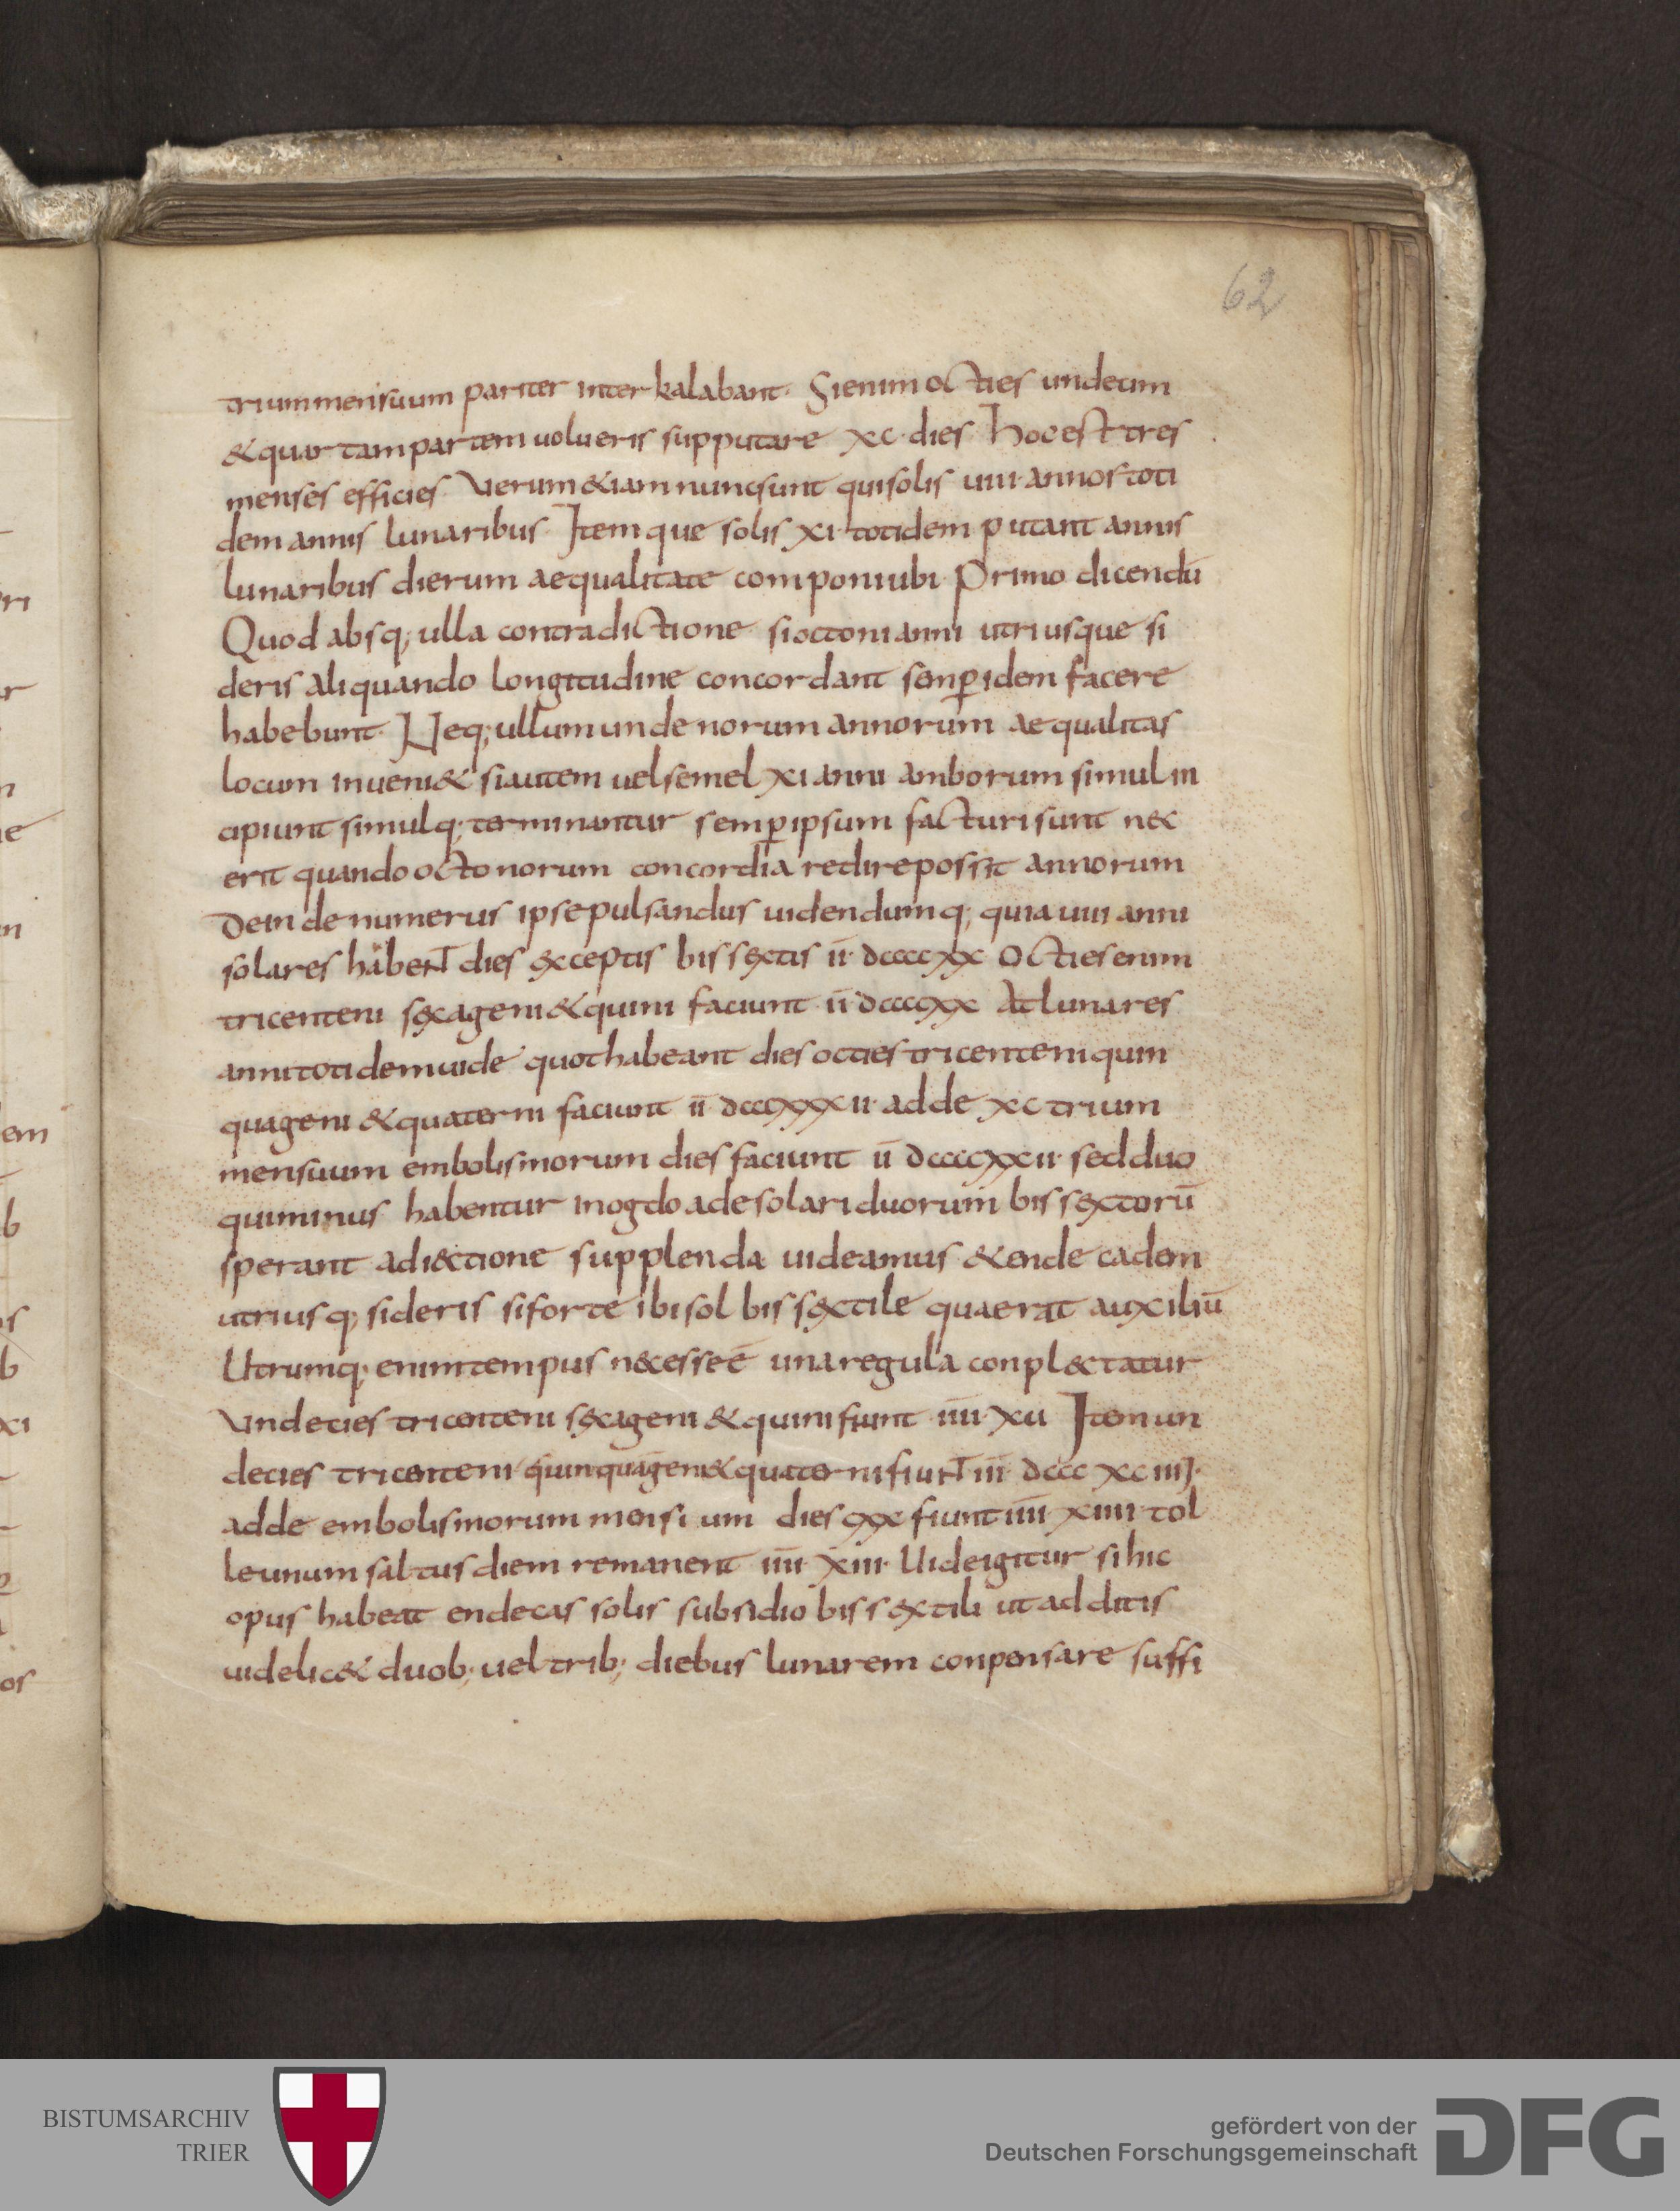 62
trium mensuum pariter interkalabant. Si enim octies undecim
& quartam partem uolueris supputare xc dies hoc est tres
menses efficies. Verum &iam nunc sunt qui solis uiii annos toti
dem annis lunaribus Itemque solis xi totidem putant annis
lunaribus dierum aequalitate componi ubi Primo dicendū
Quod absq; ulla contradictione si octoni anni utriusque si
deris aliquando longitudine concordant semꝑ idem facere
habebunt. Neq; ullum undenorum annorum aequalitas
locum inueni& si autem uel semel xi anni amborum simul in
cipiunt simulq; terminantur semꝑ ipsum facturi sunt n&
erit quando octonorum concordia redire possit annorum
Deinde numerus ipse pulsandus uidendumq; quia uiii anni
solares habent dies exceptis bissextis īī dccccxx Octies enim
tricenteni sexageni & quini faciunt īī dccccxx At lunares
anni totidem uide quot habeant dies octies tricenteni quin
quageni & quaterni faciunt īī dcccxxxii adde xc trium
mensuum embolismorum dies faciunt īī dccccxxii sed duo
qui minus habentur in ogdoade solari duorum bissextorū
sperant adiectione supplenda uideamus & endecadem
utriusq; sideris si forte ibi sol bissextile quaerat auxiliū
Utrumq; enim tempus necesse ē una regula conplectatur
Vndecies tricenteni sexageni & quini fiunt īīīī xu Item un
decies tricenteni quinquageni & quaterni fiunt īīī dccc xciiij.
adde embolismorum mensium dies cxx fiunt īīīī xiiii tol
le unum saltus diem remanent īīīī xiii. Uide igitur si hic
opus habeat endecas solis subsidio bissextili ut additis
uidelic& duob; uel trib; diebus lunarem conpensare suffi
BISTUMSARCHIV
TRIER
gefördert von der
Deutschen Forschungsgemeinschaft
DFG